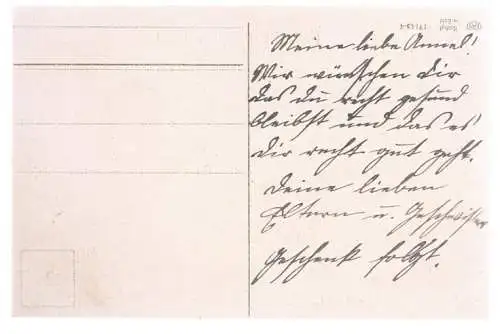 Meine liebe Anne!
Wir wünschen dir
das du recht gesund
bleibst und das es
dir recht gut geht.
Deine lieben
Eltern u. Geschwister
Geschenk folgt.